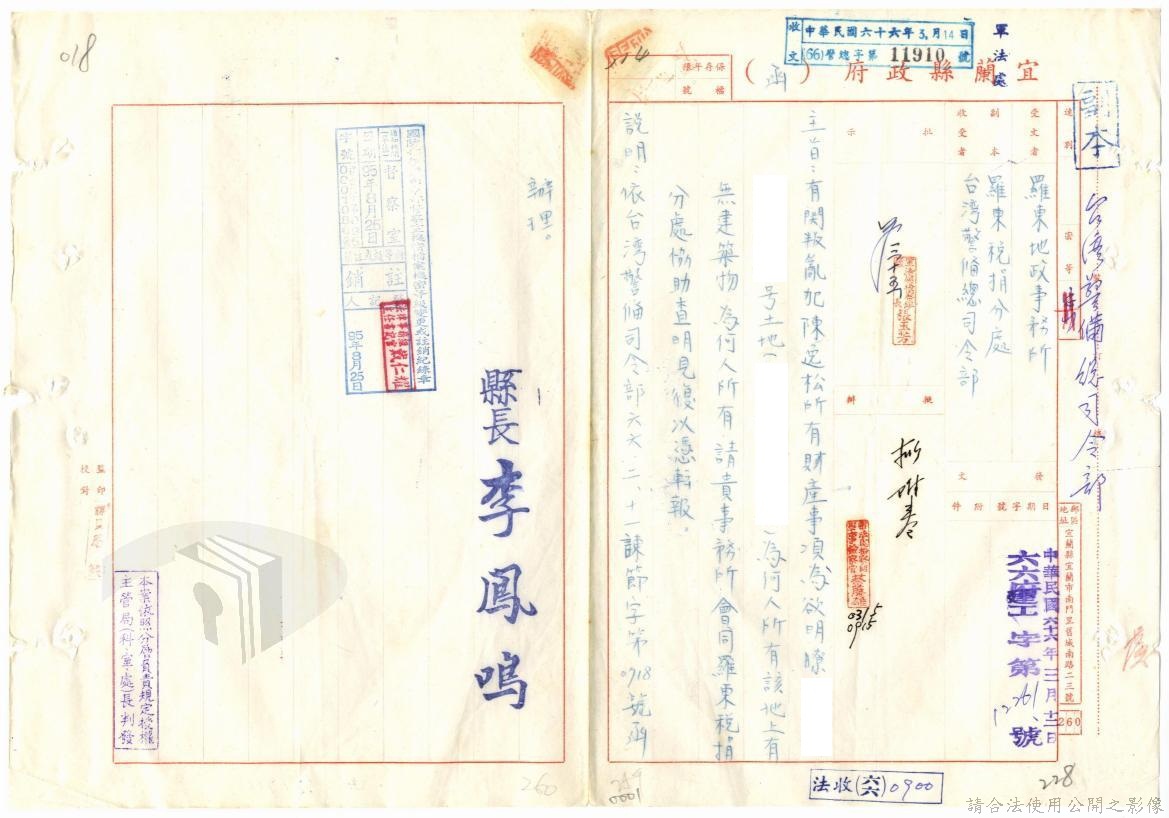 018
收文
中華民國六十六年3月14日
(66)警總字第11910號
軍法處
保存年限
檔號
宜蘭縣政府(函)
副本
台灣警備總司令部
速別
密等
受文者
羅東地政事務所
副本收受者
羅東稅捐分處
台湾警俻總司令部
發文
日期
字號
附件
中華民國六十六年三月十二日
六六建工字第
號
郵區
地址
宜蘭縣宜蘭市南門里舊城南路二三號
260
批示
擬辦
擬附卷
03/15
0915
主旨：有関叛亂犯陳逸松所有財產事項為欲明瞭
号土地(
)為何人所有該地上有
無建築物為何人所有請貴事務所會同羅東稅捐
分處協助查明見復以憑轉報。
說明：依台湾警俻司令部六六、二、十一諫節字第0718號函
辦理。
縣長李鳳鳴
督察室
95年8月25日
註銷
95年8月25日
監印
校對
本案依照分層負責規定授權
主管局(科、室、處)長判發
260
249
0001
法收(六六)0900
228
請合法使用公開之影像